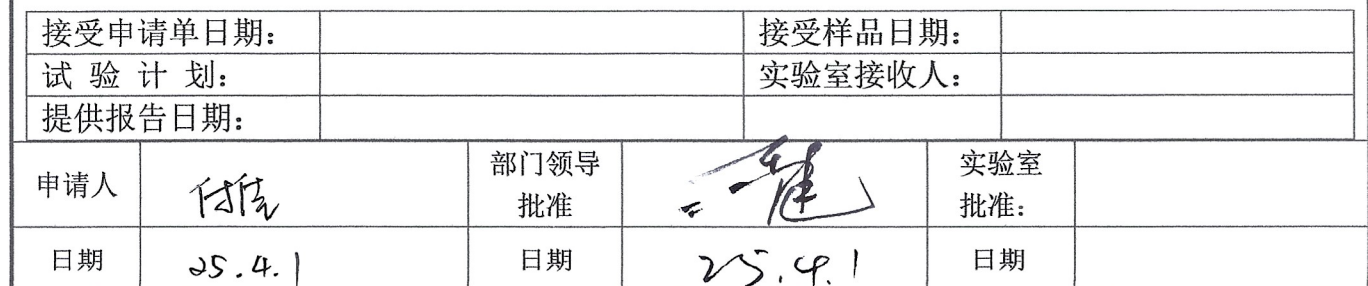 接受申请单日期： 接受样品日期：
试 验 计 划： 实验室接收人：
提供报告日期：
申请人 付 部门领导批准 实验室批准：
日期 25.4.1 日期 25.4.1 日期